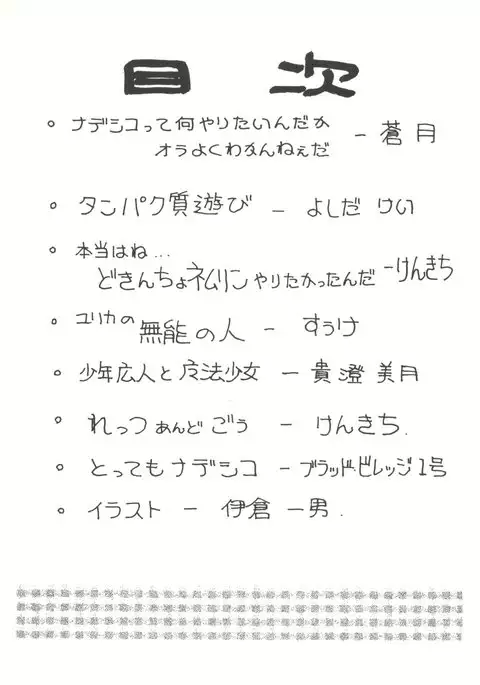 目次
。ナデシコって何やりたいんだか
オラよくわかんねぇだ ー 蒼月
。タンパク質遊び ー よしだ けい
。本当はね…
どきんちょネムリンやりたかったんだ ーけんきち
。ユリカの無能の人 ー すぅけ
。少年広人と魔法少女 ー 貴澄 美月
。れっつ あんど ごぅ ー けんきち.
。とってもナデシコ ーブラッド・ビレッジ1号
。イラスト ー 伊倉 一男.